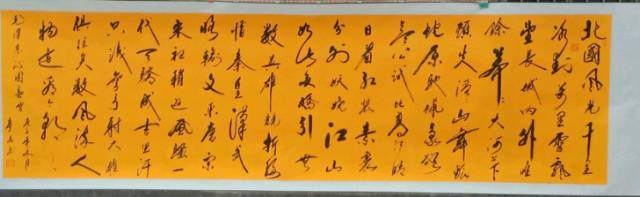 北國風光千里
冰封萬里雪飄
望長城内外惟
餘莽莽大河上下
頓失滔滔山舞銀
蛇原馳蠟象欲與
天公試比高須晴
日看紅裝素裹
分外妖嬈江山
如此多嬌引無
數英雄競折腰
惜秦皇漢武
略輸文采唐宗
宋祖稍遜風騷一
代天驕成吉思汗
只識彎弓射大雕
俱往矣數風流人
物還看今朝
毛澤東沁園春雪